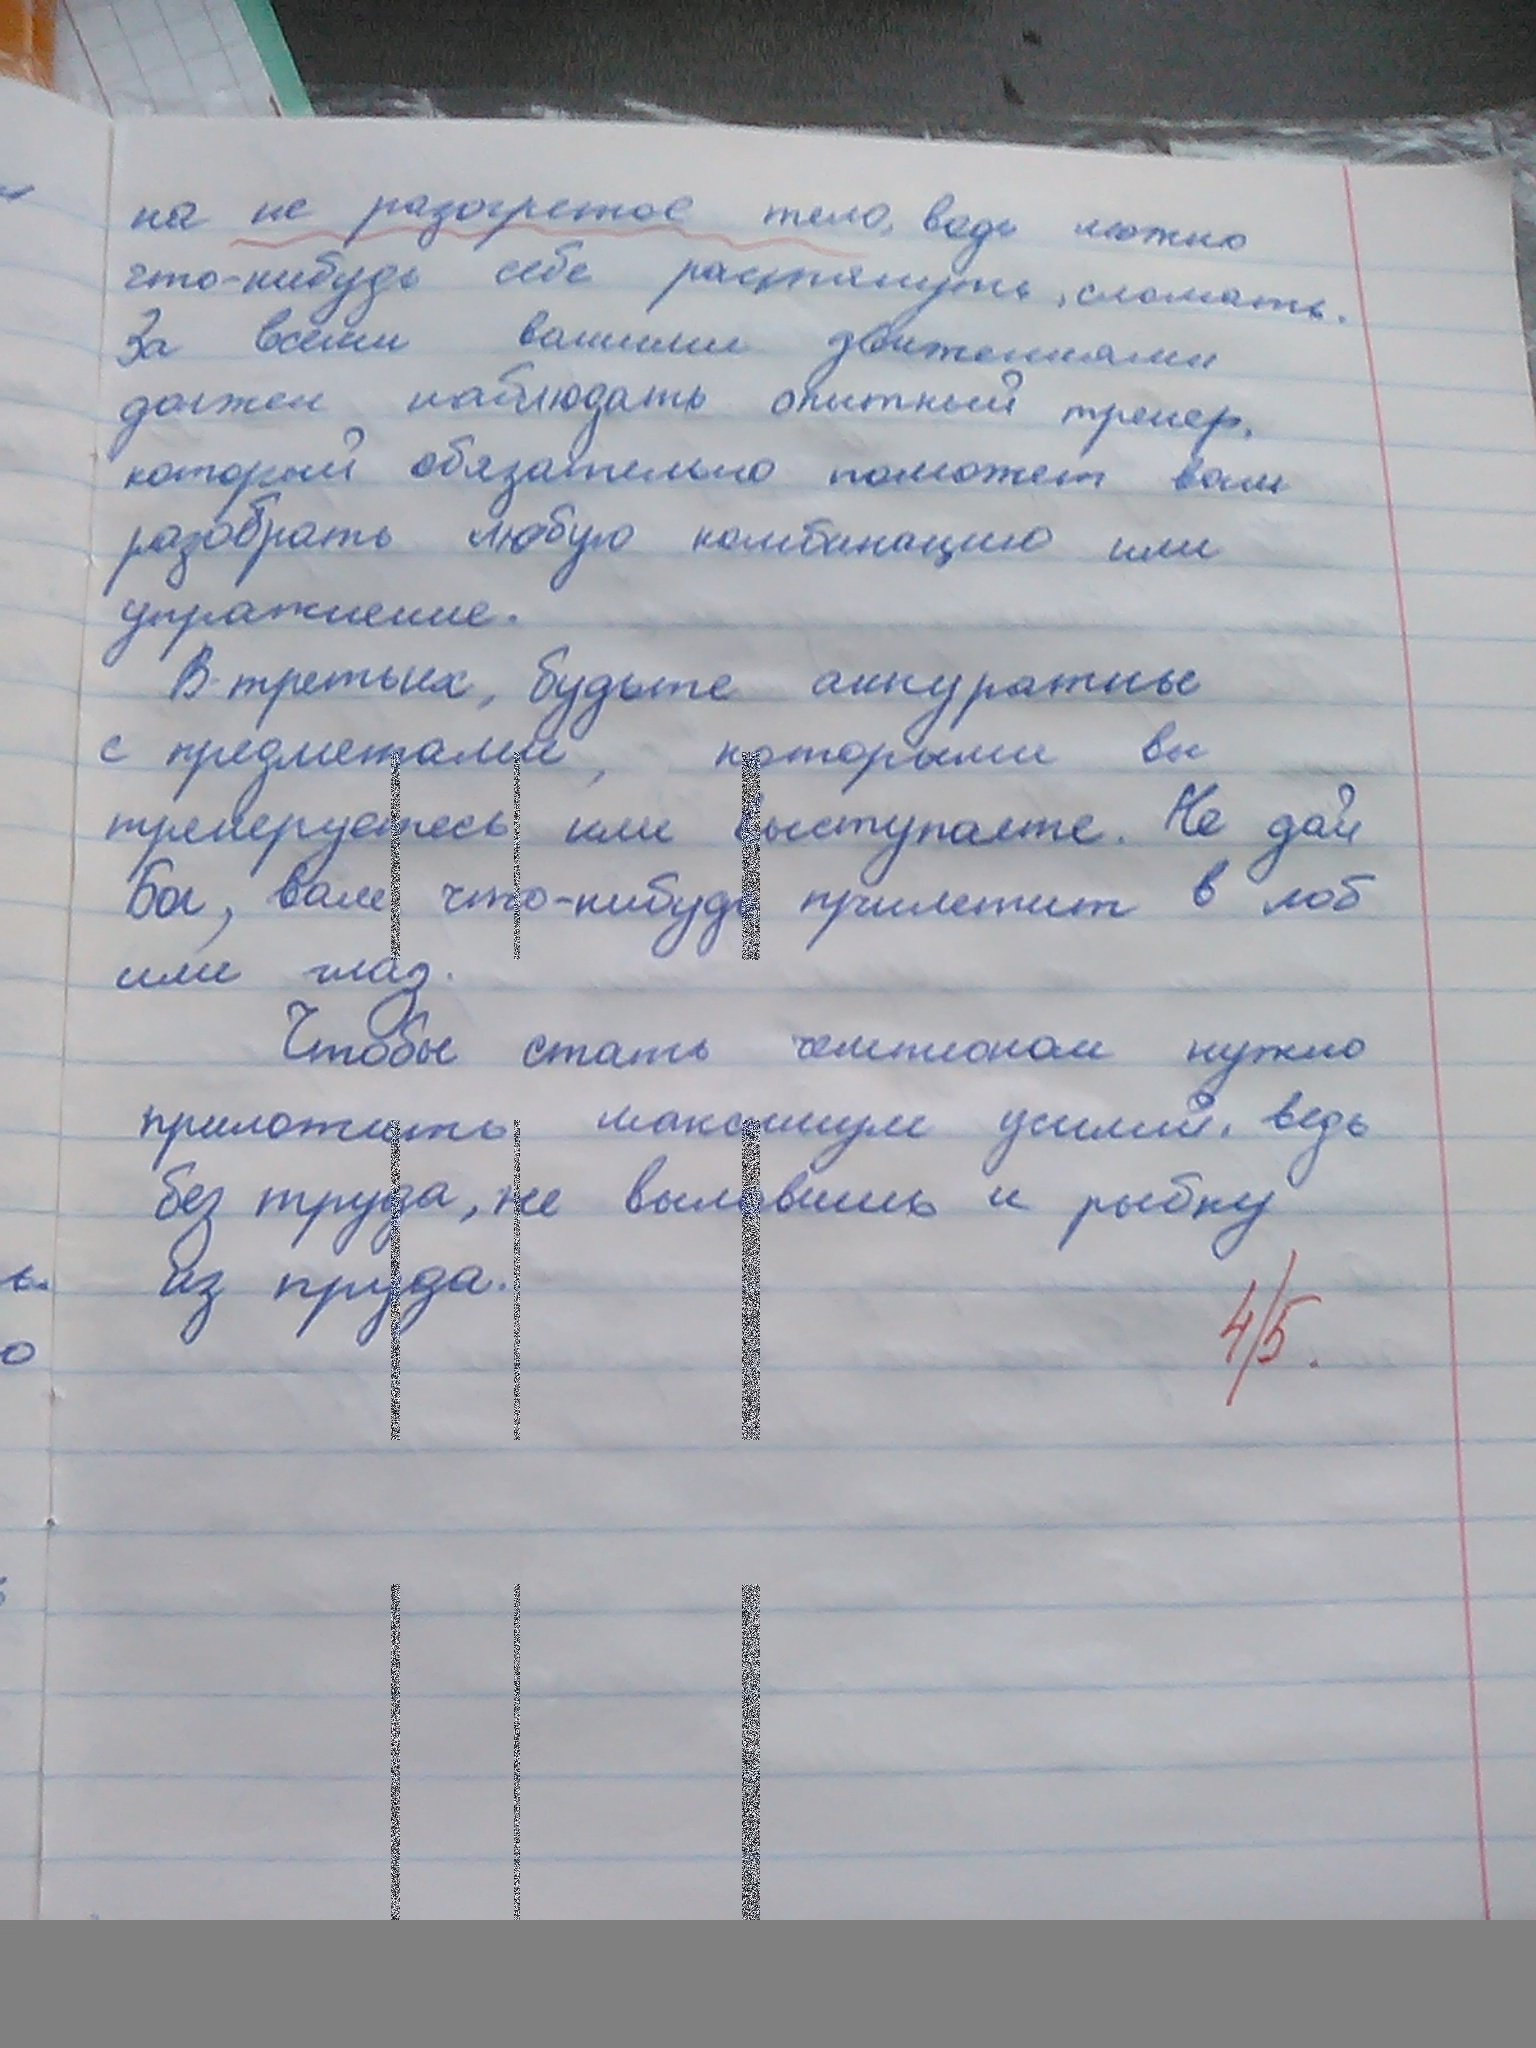 на не разогретое тело, ведь можно
что-нибудь себе растянуть, сломать.
За всеми вашими движениями
должен наблюдать опытный тренер,
который обязательно поможет вам
разобрать любую комбинацию или
упражнение.
В-третьих, будьте аккуратные
с предметами, которыми вы
тренеруетесь или выступаете. Не дай
Бог, вам что-нибудь прилетит в лоб
или глаз.
Чтобы стать чемпионом нужно
приложить максимум усилий, ведь
без труда, не выловишь и рыбку
из пруда.
4/5.